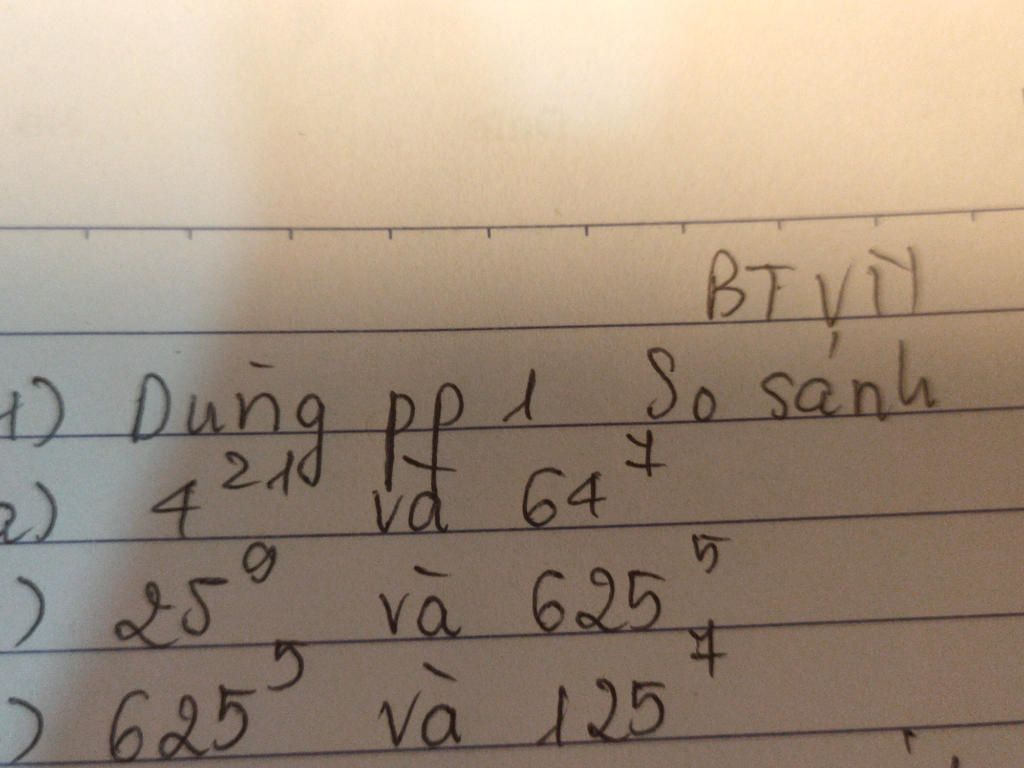 BT VN
1) Dùng pp 1 So sánh
a) 4^21 và 64^7
) 25^9 và 625^5
) 625^5 và 125^7